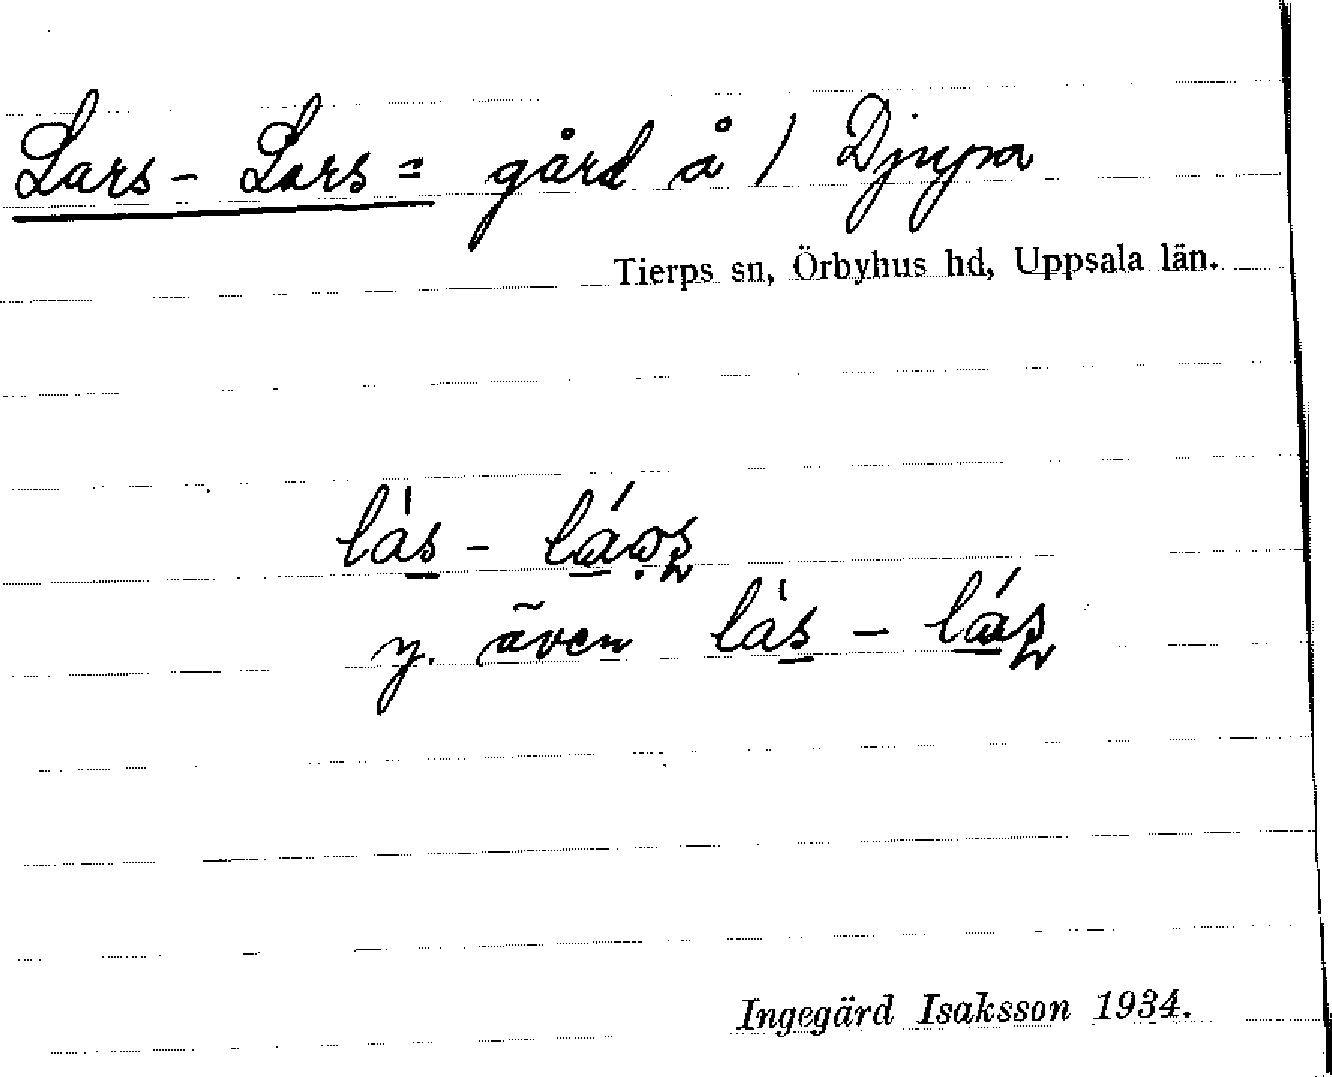 Lars - Lars = gård å / Djupa
Tierps sn, Örbyhus hd, Uppsala län.
lás -
y. även lás -
Ingegärd Isaksson 1934.